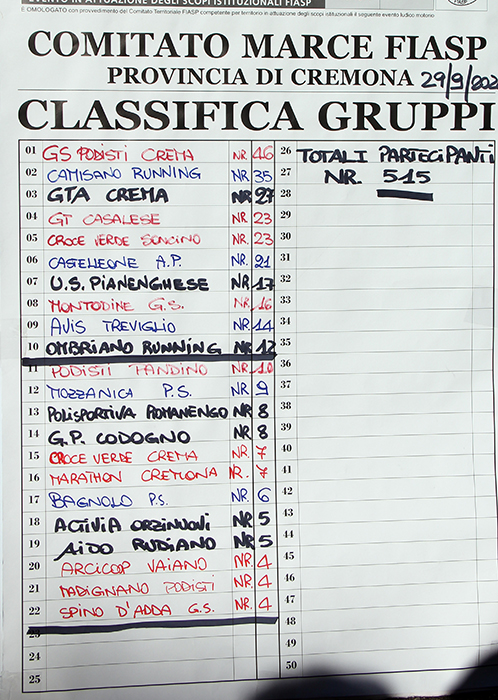 EVENTO IN ATTUAZIONE DEGLI SCOPI ISTITUZIONALI FIASP
E OMOLOGATO con provvedimento del Comitato Territoriale FIASP competente per territorio in attuazione degli scopi istituzionali il seguente evento ludico motorio
COMITATO MARCE FIASP
PROVINCIA DI CREMONA 29/9/202
CLASSIFICA GRUPPI
01 GS PODISTI CREMA NR. 46
02 CAMISANO RUNNING NR. 35
03 GTA CREMA NR 27
04 GT CASALESE NR. 23
05 CROCE VERDE SONCINO NR. 23
06 CASTELLEONE A.P. NR. 21
07 U.S. PIANENGHESE NR 17
08 MONTODINE G.S. NR. 16
09 AVIS TREVIGLIO NR. 14
10 OMBRIANO RUNNING NR 12
11 PODISTI PANDINO NR. 10
12 MOZZANICA P.S. NR. 9
13 POLISPORTIVA ROMANENGO NR 8
14 G.P. CODOGNO NR 8
15 CROCE VERDE CREMA NR. 7
16 MARATHON CREMONA NR. 7
17 BAGNOLO P.S. NR. 6
18 ACTIVIA ORZINUOVI NR 5
19 AIDO RUDIANO NR 5
20 ARCICOOP VAIANO NR. 4
21 MADIGNANO PODISTI NR. 4
22 SPINO D'ADDA G.S. NR. 4
23
24
25
26 TOTALI PARTECIPANTI
27 NR. 515
28
29
30
31
32
33
34
35
36
37
38
39
40
41
42
43
44
45
46
47
48
49
50